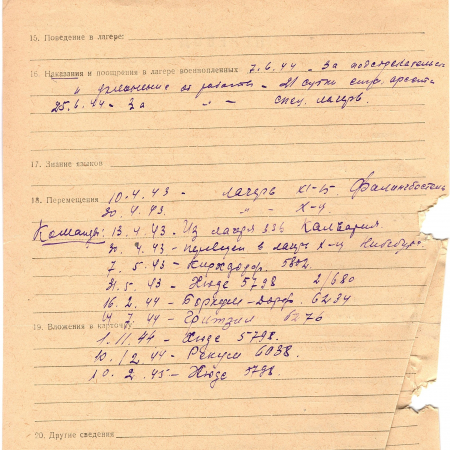 15. Поведение в лагере:
16. Наказания и поощрения в лагере военнопленных 7.6.44 - За подстрекательс
и уклонение от работы - 21 сутки стр. ареста
25.6.44 - За " - " - спец. лагерь.
17. Знание языков
18. Перемещения 10.4.43 - лагерь XI-В Фаллингбостель
20.4.43. " - Х-
Команды: 13.4.43 - Из лагеря 336 Калвария.
20.4.43 - переведен в лагерь Х- Нинбург.
7.5.43 - Кирхдорф. 5802.
31.5.43 - Хюде 5798 21680
16.2.44 - Боркфен-Дорф. 6234
4.7.44 - 6276
19. Вложения в карточку
1.11.44 - Хюде 5798.
10.12.44 - 6038.
10.2.45 - Хюде 5798
20. Другие сведения